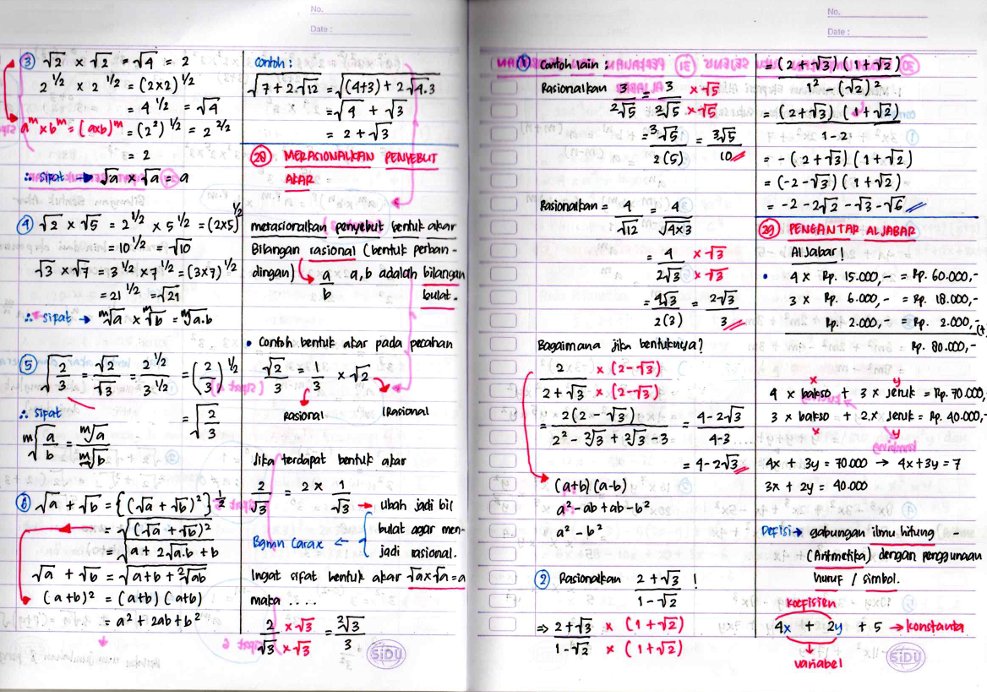 ③ √2 × √2 = √4 = 2
2^1/2 × 2^1/2 = (2×2)^1/2
= 4^1/2 = √4
a^m × b^m = (axb)^m = (2²)^1/2 = 2^2/2
= 2
∴ sifat → √a × √a = a
④ √2 × √5 = 2^1/2 × 5^1/2 = (2×5)^1/2
= 10^1/2 = √10
√3 × √7 = 3^1/2 × 7^1/2 = (3×7)^1/2
= 21^1/2 = √21
∴ sifat → ᵐ√a × ᵐ√b = ᵐ√a.b
⑤ √(2/3) = √2/√3 = 2^1/2 / 3^1/2 = (2/3)^1/2
∴ sifat = √(2/3)
ᵐ√(a/b) = ᵐ√a / ᵐ√b
⑥ √a + √b = {(√a + √b)²}^1/2
= √(√a + √b)²
= √a + 2√a.b + b
√a + √b = √a+b + 2√ab
(a+b)² = (a+b) (a+b)
= a² + 2ab + b²
Contoh :
√7 + 2√12 = √(4+3) + 2√4.3
= √4 + √3
= 2 + √3
㉘ MERASIONALKAN PENYEBUT
AKAR
merasionalkan penyebut bentuk akar
Bilangan rasional (bentuk perban-
dingan) → a/b a, b adalah bilangan
bulat.
• Contoh bentuk akar pada pecahan
√2/3 = 1/3 × √2
rasional irasional
Jika terdapat bentuk akar
2/√3 = 2 × 1/√3 → ubah jadi bil
bulat agar men-
jadi rasional.
Bgmn Carax ←
Ingat sifat bentuk akar √a×√a = a
maka ....
2/√3 × √3/√3 = 2√3/3
SiDU
No.
Date :
① Contoh lain :
Rasionalkan 3/2√5 = 3/2√5 × √5/√5
= 3√5/2(5) = 3√5/10
Rasionalkan = 4/√12 = 4/√4×3
= 4/2√3 × √3/√3
= 4√3/2(3) = 2√3/3
Bagaimana jika bentuknya?
2/2+√3 × (2-√3)/(2-√3)
= 2(2-√3)/2² - 2√3 + 2√3 - 3 = 4-2√3/4-3
= 4-2√3
(a+b)(a-b)
a²-ab+ab-b²
a² - b²
② Rasionalkan 2+√3/1-√2 !
⇒ 2+√3/1-√2 × (1+√2)/(1+√2)
= (2+√3) (1+√2)/1² - (√2)²
= (2+√3) (1+√2)/1-2
= -(2+√3) (1+√2)
= (-2-√3) (1+√2)
= -2-2√2 -√3 -√6
㉙ PENGANTAR ALJABAR
Aljabar!
• 4 x Rp. 15.000,- = Rp. 60.000,-
3 x Rp. 6.000,- = Rp. 18.000,-
Rp. 2.000,- = Rp. 2.000,- (+)
Rp. 80.000,-
x y
4 x bakso + 3 x jeruk = Rp. 70.000,
3 x bakso + 2 x jeruk = Rp. 40.000,-
x y
4x + 3y = 70.000 → 4x+3y = 7
3x + 2y = 40.000
Defisi → gabungan ilmu hitung -
(Aritmetika) dengan penggunaan
huruf / simbol.
koefisien
4x + 2y + 5 → konstanta
variabel
SiDU
No.
Date :